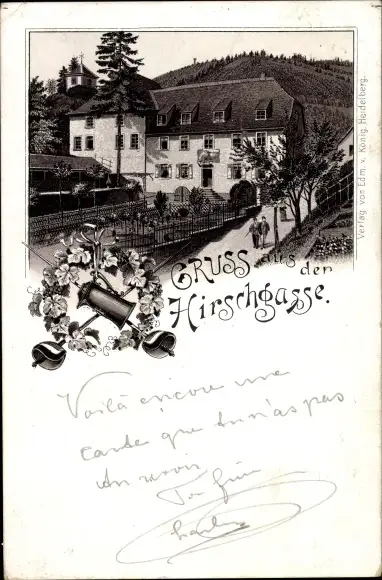 GRUSS aus der
Hirschgasse.
Verlag von Edm. v. König, Heidelberg.
Voilà encore une
carte que tu n'as pas
Ton frère
Charles